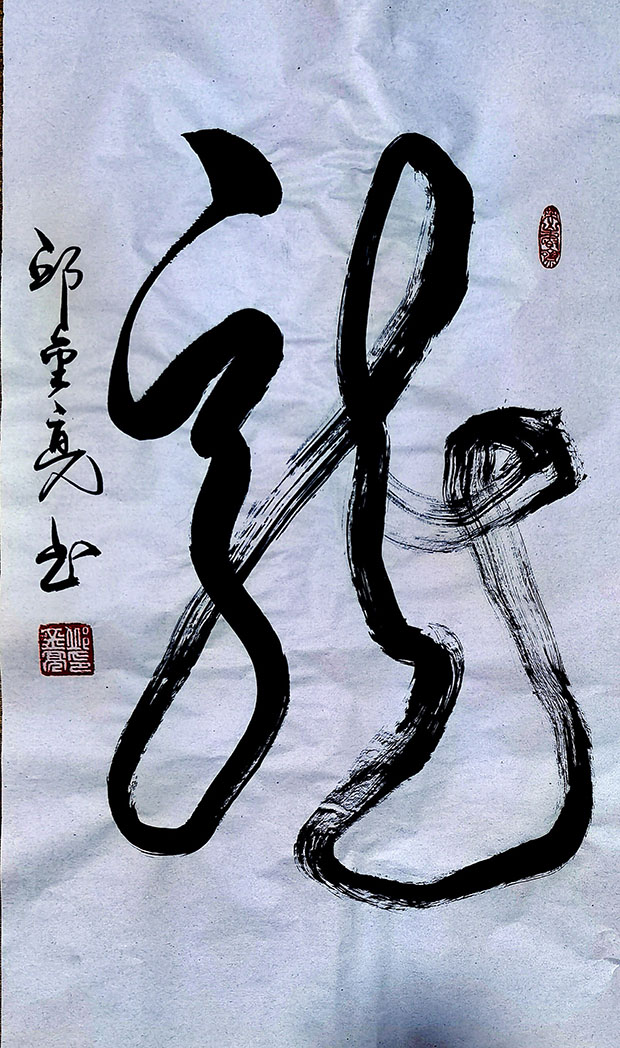 龍
邱金亮书